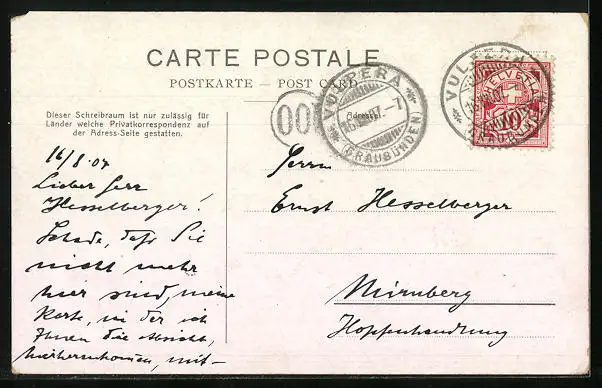 CARTE POSTALE
POSTKARTE — POST CARD
Dieser Schreibraum ist nur zulässig für
Länder welche Privatkorrespondenz auf
der Adress-Seite gestatten.
Adresse:
00
VULPERA
16.VIII.07.-7
(GRAUBÜNDEN)
VULPERA
(GRAUBÜNDEN)
HELVETIA
10
16/8.07
Lieber Herr
Hesselberger!
Schade, daß Sie
nicht mehr
hier sind, meine
Karte, in der ich
Ihnen die Absicht,
mit-
Herrn
Ernst Hesselberger
Nürnberg
Hopfenhandlung